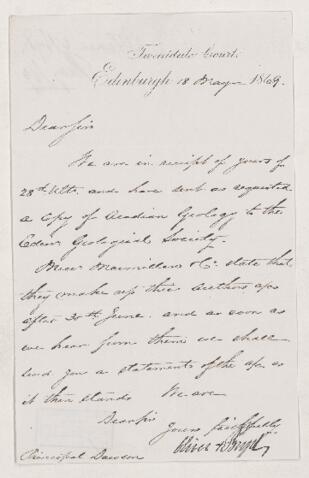 Tweeddale Court,
Edinburgh 18 May 1869.
Dear Sir
We are in receipt of yours of
28th Ulto. and have sent as requested
a copy of Acadian Geology to the
Edinr Geological Society.
Messrs Macmillan & Co. state that
they make up their authors a/cs
after 30th June. and as soon as
we hear from them we shall
send you a statement of the a/c as
it then stands. We are
Dear Sir
Yours faithfully
Oliver & Boyd
Principal Dawson